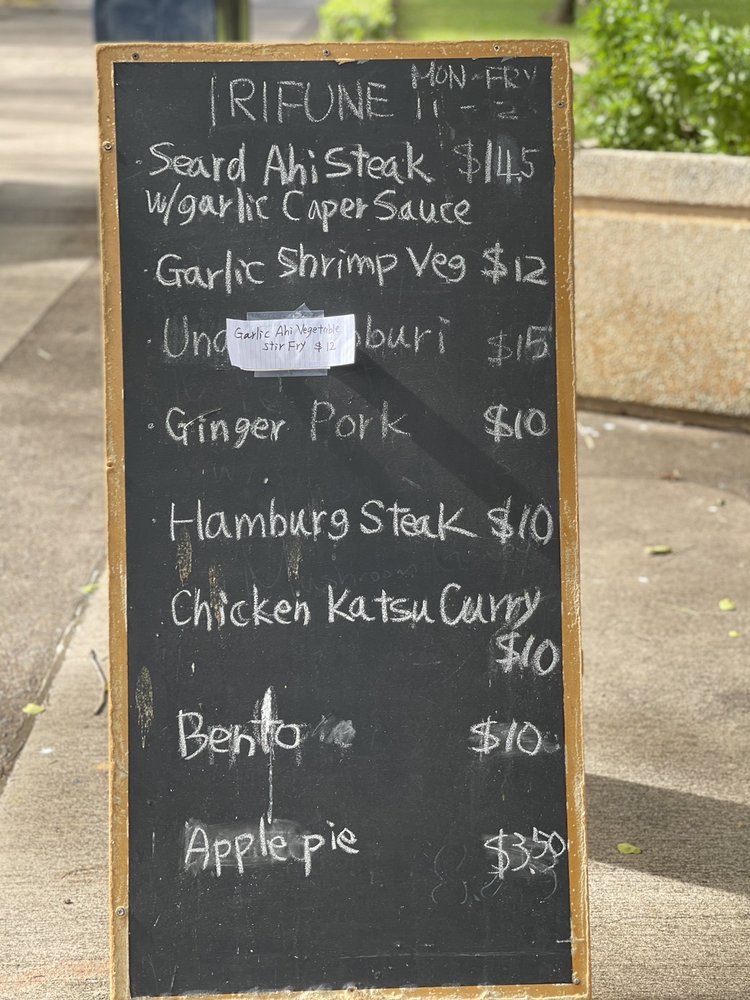 IRIFUNE MON-FRY
11-2
Seard Ahi Steak $14.5
w/garlic Caper Sauce
Garlic Shrimp Veg $12
Garlic Ahi Vegetable
Stir Fry $12
$15
Ginger Pork $10
Hamburg Steak $10
Chicken Katsu Curry
$10
Bento $10
Apple pie $3.50